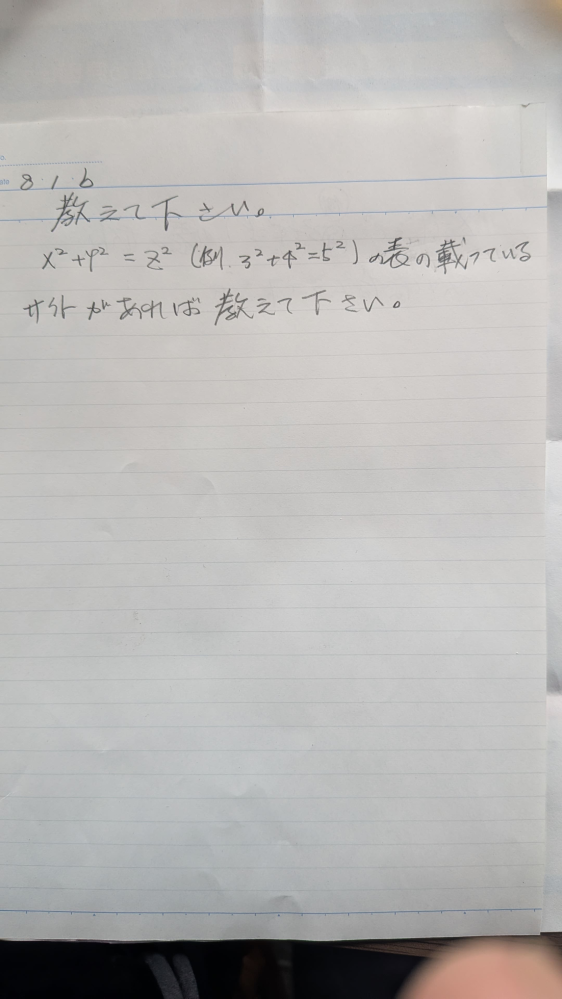 8 1 6
教えて下さい。
x²+y² = z² (例. 3²+4²=5²) の表の載っている
サイトがあれば 教えて下さい。